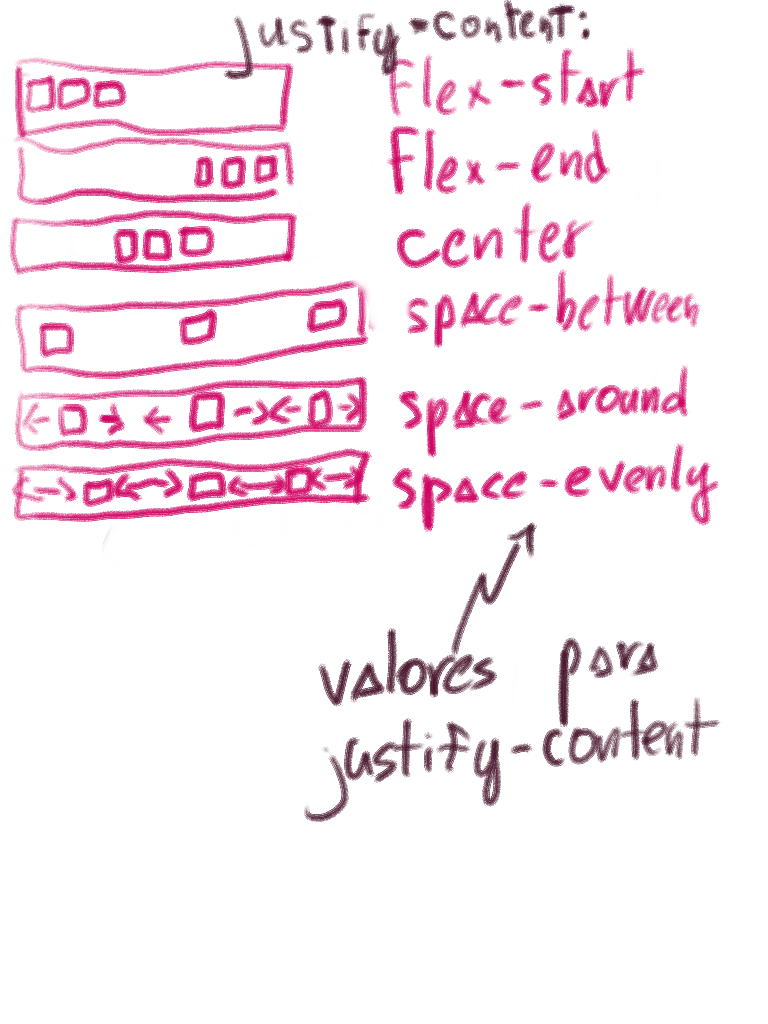 justify-content:
flex-start
flex-end
center
space-between
space-around
space-evenly
valores para
justify-content